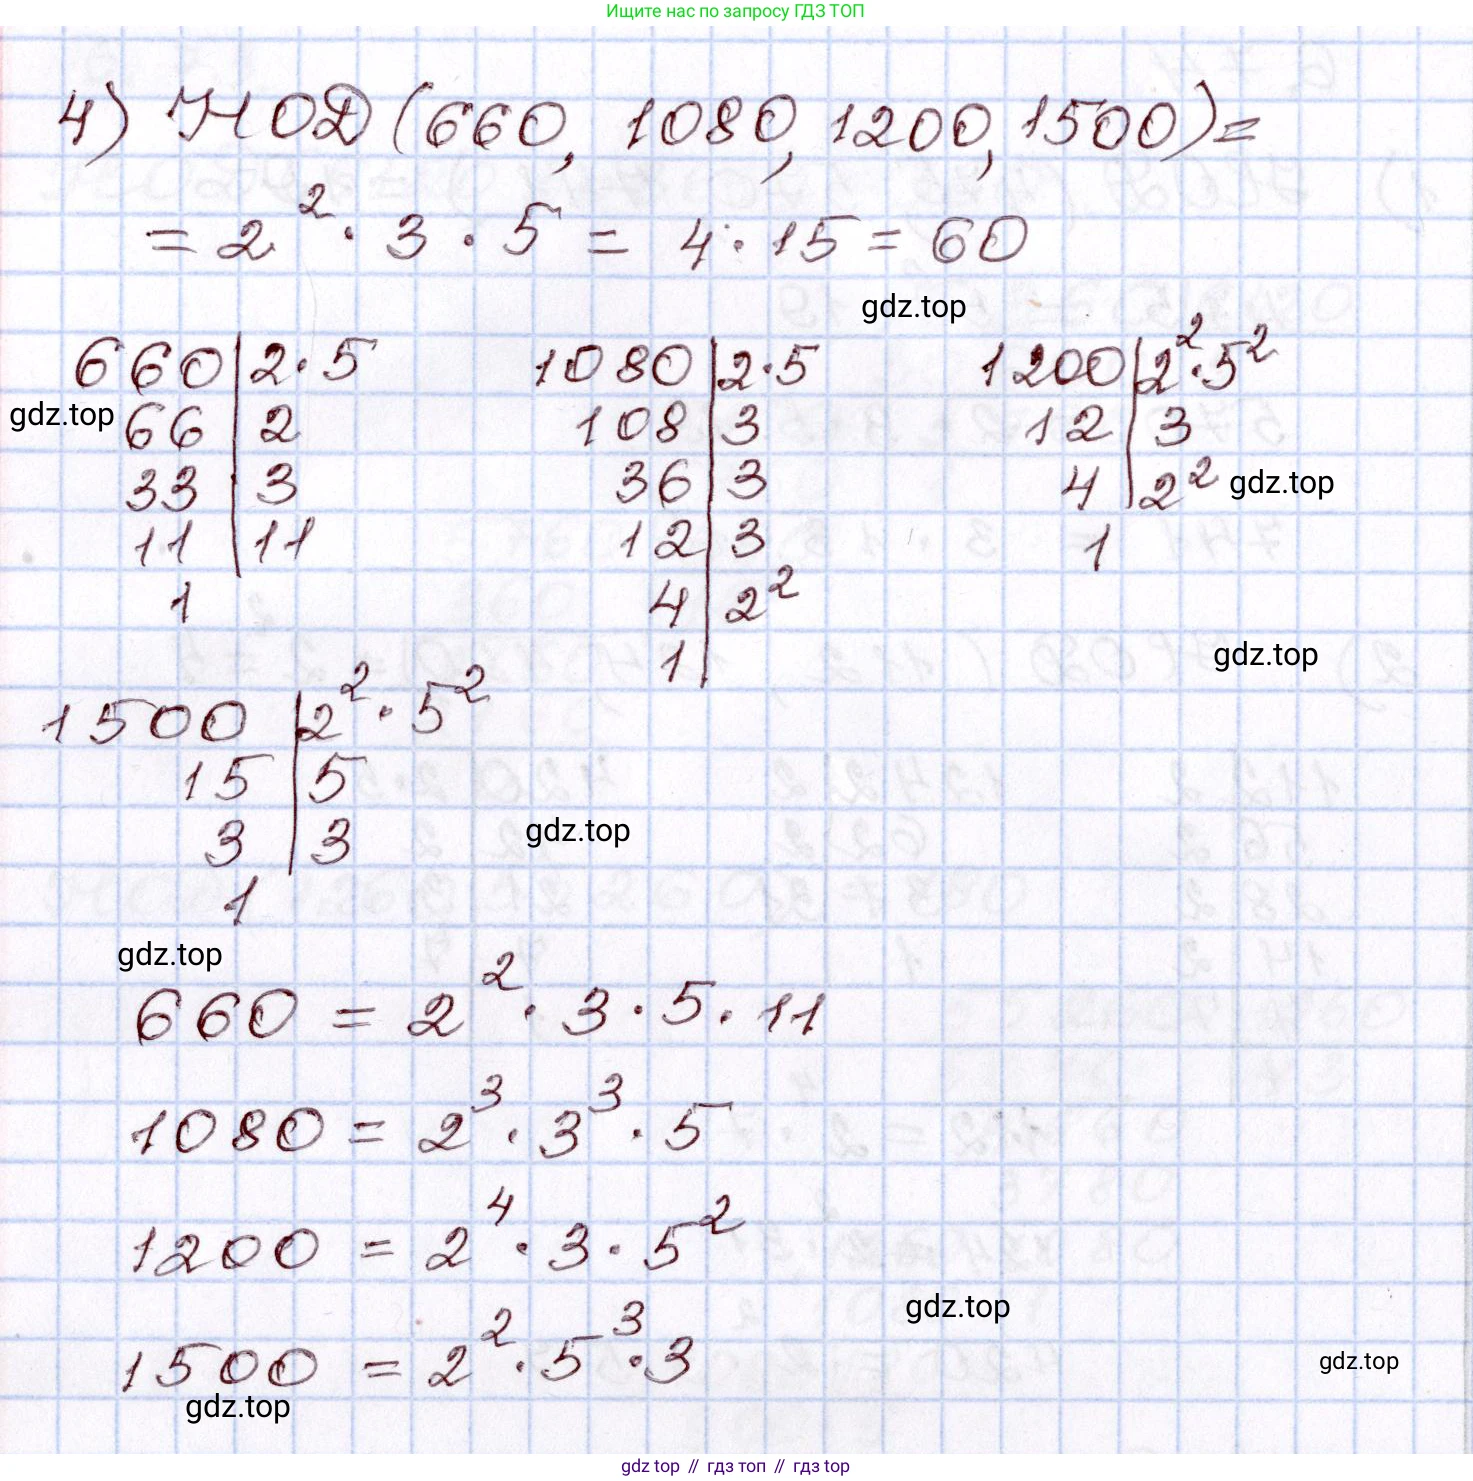 Ищите нас по запросу ГДЗ ТОП
4) НОД (660, 1080, 1200, 1500) =
= 2² · 3 · 5 = 4 · 15 = 60
gdz.top
660 | 2 · 5
66 | 2
33 | 3
11 | 11
1
gdz.top
1080 | 2 · 5
108 | 3
36 | 3
12 | 3
4 | 2²
1
1200 | 2² · 5²
12 | 3
4 | 2²
1
gdz.top
gdz.top
1500 | 2² · 5²
15 | 5
3 | 3
1
gdz.top
gdz.top
660 = 2² · 3 · 5 · 11
1080 = 2³ · 3³ · 5
1200 = 2⁴ · 3 · 5²
gdz.top
1500 = 2² · 5³ · 3
gdz.top
gdz.top
gdz top // гдз топ // гдз top